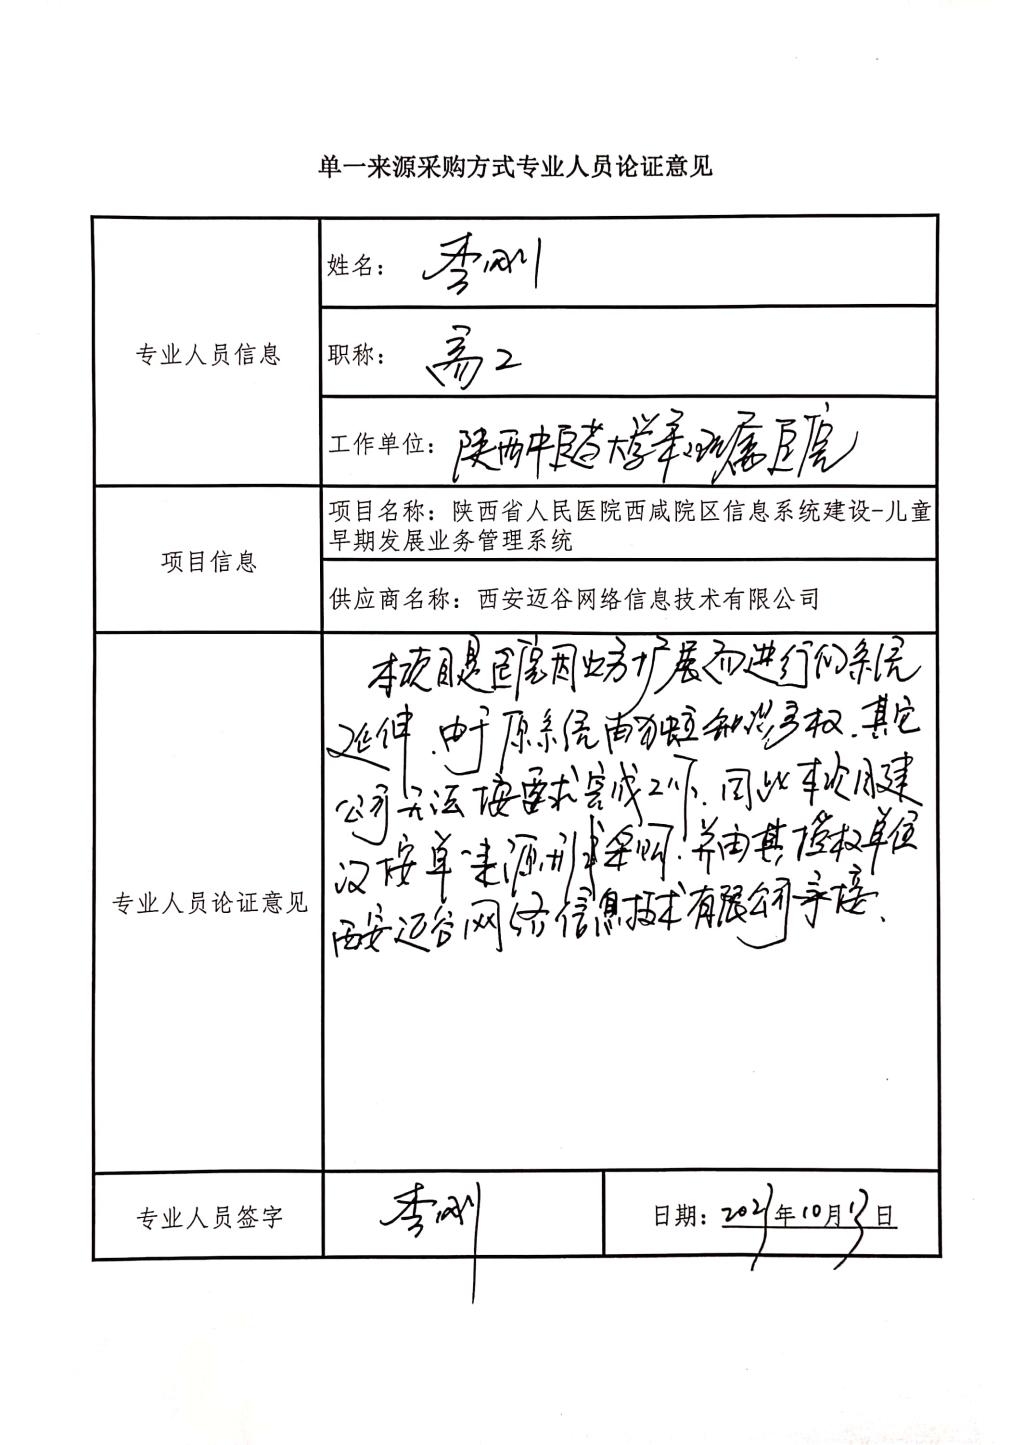 单一来源采购方式专业人员论证意见
专业人员信息
姓名：李刚
职称：高工
工作单位：陕西中医药大学第二附属医院
项目信息
项目名称：陕西省人民医院西咸院区信息系统建设-儿童
早期发展业务管理系统
供应商名称：西安迈谷网络信息技术有限公司
专业人员论证意见
本项目是医院因业务扩展而进行的系统
延伸．由于原系统有独立知识产权．其它
公司无法按要求完成工作．因此本次建
议按单一来源形式采购．并由其授权单位
西安迈谷网络信息技术有限公司承接．
专业人员签字
李刚
日期：年10月13日